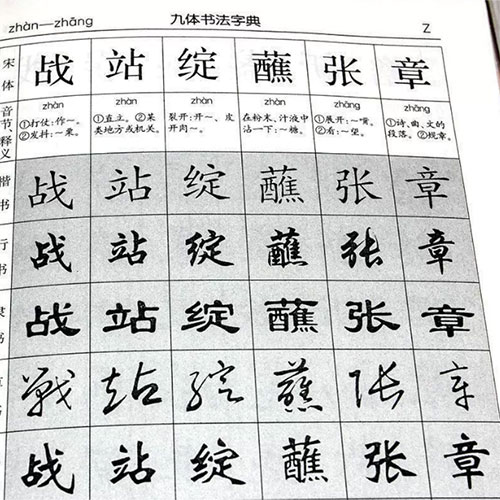 zhàn—zhāng 九体书法字典 Z
宋体 战 站 绽 蘸 张 章
音节、释义 zhàn zhàn zhàn zhàn zhāng zhāng
①打仗:作～。 ①直立。②某 裂开:开～、皮 在粉末、汁液中 ①展开:～嘴。 ①诗、曲、文的
②发抖:～栗。 类地方或机关。 开肉～。 沾一下:～糖。 ②看:～望。 段落。②规章。
楷书 战 站 绽 蘸 张 章
行书 战 站 绽 蘸 张 章
隶书 战 站 绽 蘸 张 章
戰 站 绽 蘸 张 章
战 站 绽 蘸 张 章